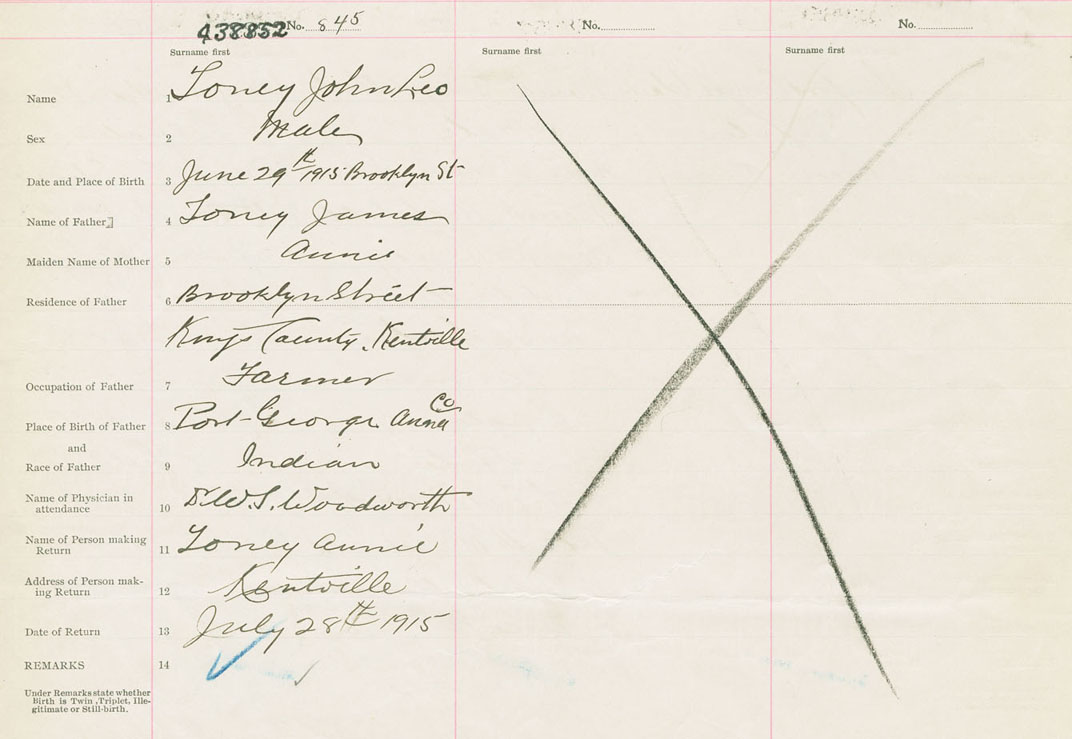 438852 No. 845 No. No.
Surname first Surname first Surname first
Name 1 Toney John Leo
Sex 2 Male
Date and Place of Birth 3 June 29th 1915 Brooklyn St
Name of Father 4 Toney James
Maiden Name of Mother 5 Annie
Residence of Father 6 Brooklyn Street
Kings County, Kentville
Occupation of Father 7 Farmer
Co
Place of Birth of Father 8 Port George Anna
and
Race of Father 9 Indian
Name of Physician in
attendance 10 Dr W.S. Woodworth
Name of Person making
Return 11 Toney Annie
Address of Person mak-
ing Return 12 Kentville
Date of Return 13 July 28th 1915
REMARKS 14
Under Remarks state whether
Birth is Twin, Triplet, Ille-
gitimate or Still-birth.